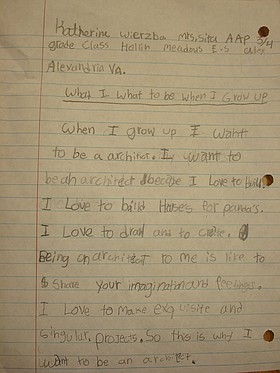 Katherine Wierzba Mrs. Sira AAP 3/4
grade Class Hollin Meadows E-S
Alexandria VA.
What I What to be when I Grow up
When I grow up I want
to be a architect. I want to
be an architect because I Love to build.
I Love to build Houses for panda's.
I Love to draw and to create.
Being an architect to me is like to
share your imagination and feelings.
I Love to make exquisite and
singular, projects. So this is why I
want to be an architect.